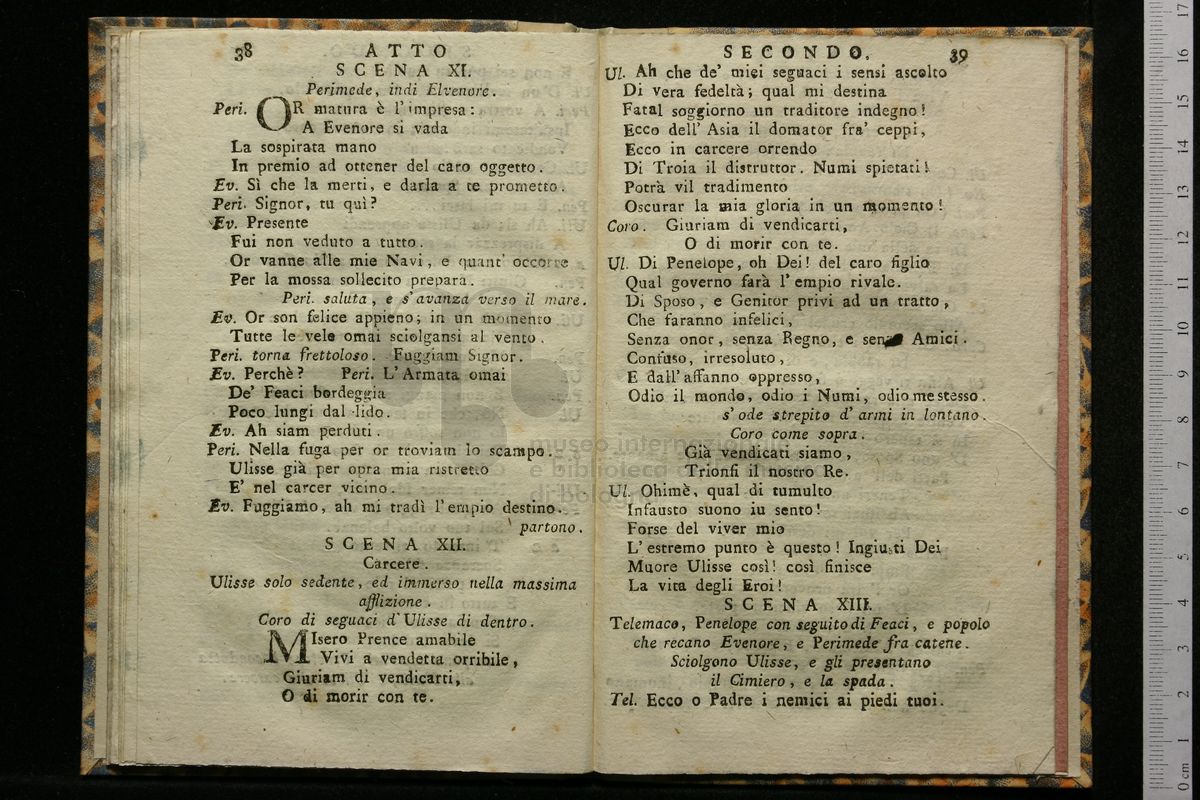 38 ATTO
SCENA XI.
Perimede, indi Elvenore.
Peri. OR matura è l'impresa:
A Evenore si vada
La sospirata mano
In premio ad ottener del caro oggetto.
Ev. Sì che la merti, e darla a te prometto.
Peri. Signor, tu quì?
Ev. Presente
Fui non veduto a tutto.
Or vanne alle mie Navi, e quant' occorre
Per la mossa sollecito prepara.
Peri. saluta, e s'avanza verso il mare.
Ev. Or son felice appieno; in un momento
Tutte le vele omai sciolgansi al vento.
Peri. torna frettoloso. Fuggiam Signor.
Ev. Perchè? Peri. L'Armata omai
De' Feaci bordeggia
Poco lungi dal lido.
Ev. Ah siam perduti.
Peri. Nella fuga per or troviam lo scampo.
Ulisse già per opra mia ristretto
E' nel carcer vicino.
Ev. Fuggiamo, ah mi tradì l'empio destino.
partono.
SCENA XII.
Carcere.
Ulisse solo sedente, ed immerso nella massima
afflizione.
Coro di seguaci d'Ulisse di dentro.
MIsero Prence amabile
Vivi a vendetta orribile,
Giuriam di vendicarti,
O di morir con te.
SECONDO. 39
Ul. Ah che de' miei seguaci i sensi ascolto
Di vera fedeltà; qual mi destina
Fatal soggiorno un traditore indegno!
Ecco dell' Asia il domator fra' ceppi,
Ecco in carcere orrendo
Di Troia il distruttor. Numi spietati!
Potrà vil tradimento
Oscurar la mia gloria in un momento!
Coro. Giuriam di vendicarti,
O di morir con te.
Ul. Di Penelope, oh Dei! del caro figlio
Qual governo farà l'empio rivale.
Di Sposo, e Genitor privi ad un tratto,
Che faranno infelici,
Senza onor, senza Regno, e senza Amici.
Confuso, irresoluto,
E dall'affanno oppresso,
Odio il mondo, odio i Numi, odio me stesso.
s'ode strepito d'armi in lontano.
Coro come sopra.
Già vendicati siamo,
Trionfi il nostro Re.
Ul. Ohimè, qual di tumulto
Infausto suono iu sento!
Forse del viver mio
L'estremo punto è questo! Ingiusti Dei
Muore Ulisse così! così finisce
La vita degli Eroi!
SCENA XIII.
Telemaco, Penelope con seguito di Feaci, e popolo
che recano Evenore, e Perimede fra catene.
Sciolgono Ulisse, e gli presentano
il Cimiero, e la spada.
Tel. Ecco o Padre i nemici ai piedi tuoi.
museo internazionale
e biblioteca
di bologna
0 cm 1 2 3 4 5 6 7 8 9 10 11 12 13 14 15 16 17